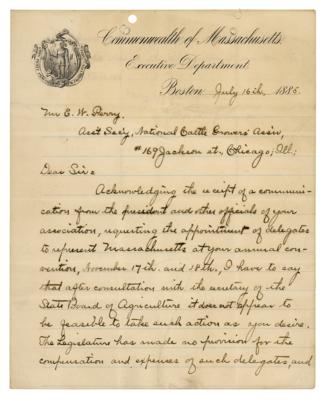 Commonwealth of Massachusetts.
Executive Department.
Boston July 16th, 1885.
Mr E. W. Perry,
Ass't Sec'y, National Cattle Growers' Ass'n,
#169 Jackson st., Chicago, Ill:
Dear Sir:
Acknowledging the receipt of a communi-
cation from the president and other officials of your
association, requesting the appointment of delegates
to represent Massachusetts at your annual con-
vention, November 17th. and 18th., I have to say
that after consultation with the secretary of the
State Board of Agriculture it does not appear to
be feasible to take such action as you desire.
The Legislature has made no provision for the
compensation and expenses of such delegates, and